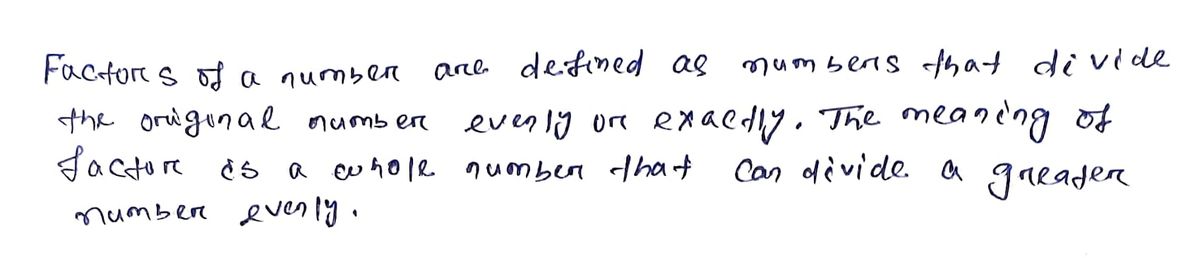 Factors of a number are defined as numbers that divide
the original number evenly or exactly. The meaning of
factor is a whole number that can divide a greater
number evenly.